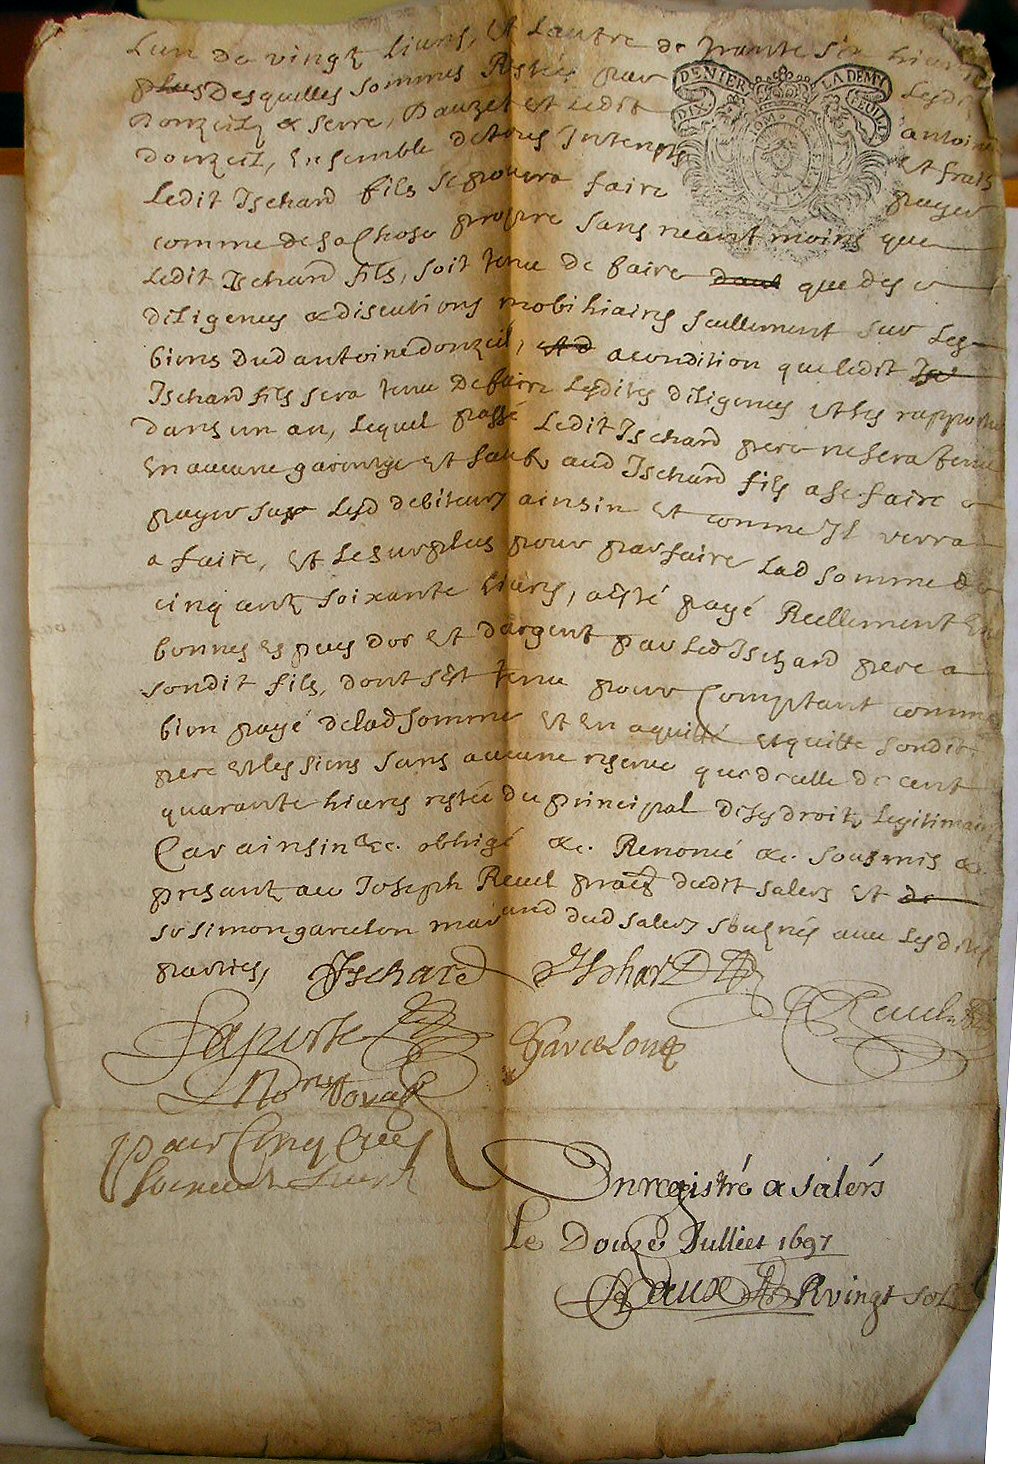 Lun de vingt livres, et Lautre de trante six livres
plus Desquelles sommes Restées par Lesdits
DIX DENIERS LA DEMY FEUILLE
donzeil & serre, Dauzet et Ledit antoine
donzeil, Ensemble de tous Interests et frais
Ledit Ischard fils se pouvra faire payer
comme de sa chose propre sans neant moins que
Ledit Ischard fils, soit tenu de faire daut que des
diligences & discutions mobiliaires seullement sur Les
biens dud antoine donzeil, et d a condition que ledit Isc
Ischard fils sera tenu de faire lesdites diligences et les rapporter
dans un an, lequel passé Ledit Ischard pere ne sera tenu
En aucune garentye et sauf aud Ischard fils a se faire
payer sur Lesd debiteurs ainsin et comme Il verra
a faire, et le surplus pour parfaire Lad somme de
cinq cent soixante livres, a esté payé Reellement En
bonnes espeues dor et dargent par Led Ischard pere a
sondit fils, dont sest tenu pour Comptant comme
bien payé de lad somme et en a quitté et quitte sondit
pere et les siens sans aucune reserve que de celle de cent
quarante livres restée du principal de ses droits Legitimaires
Car ainsin &c. obligé &c. Renoncé &c. sousmis &c.
presant au Joseph Reuel prats dudit salers et de
sr simon garcelon marchand dud salers soubsnés avec Lesdites
parties, Ischard Ischard
Laporte Garcelon Reuel
No.re Royal
Pour Cinq Cens
soixante Livres
Enregistré a salérs
Le Douze Julliet 1697
Deaux R vingt sols